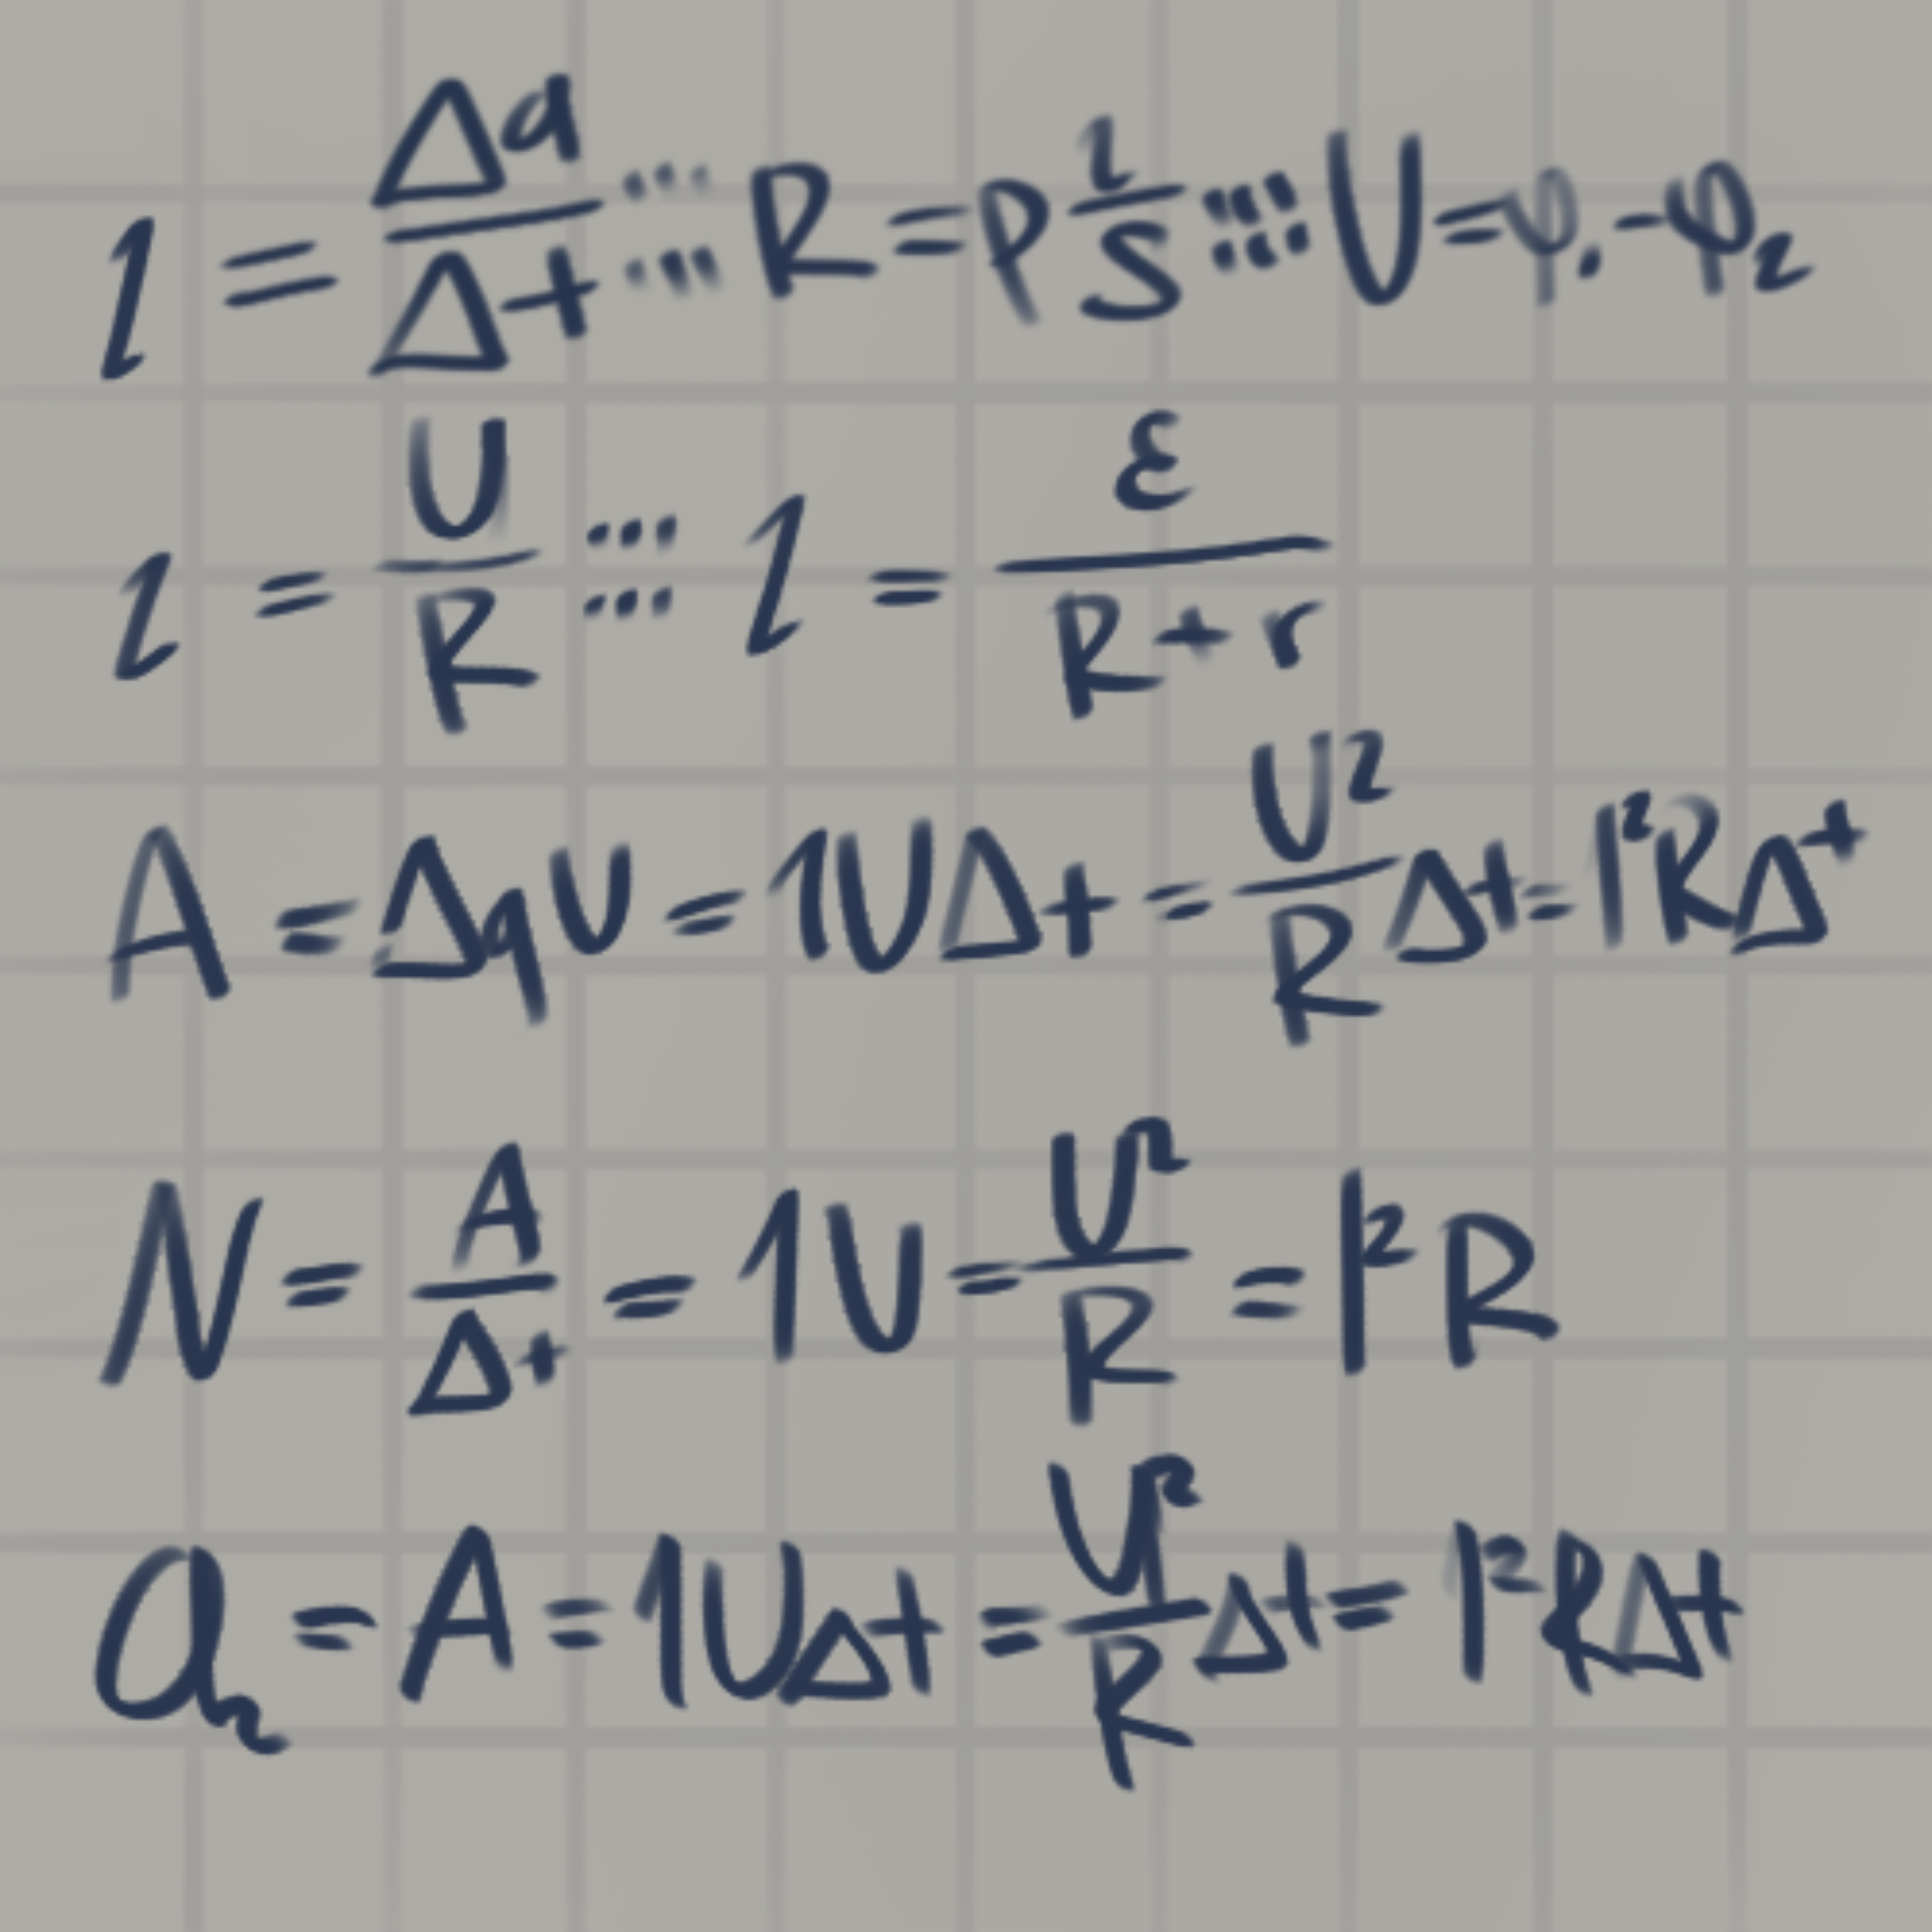 I = Δq/Δt ...... R = ρ l/S ...... U = φ₁ - φ₂
I = U/R ...... I = ε/(R + r)
A = ΔqU = IUΔt = U²/R Δt = I²RΔt
N = A/Δt = IU = U²/R = I²R
Q = A = IUΔt = U²/R Δt = I²RΔt